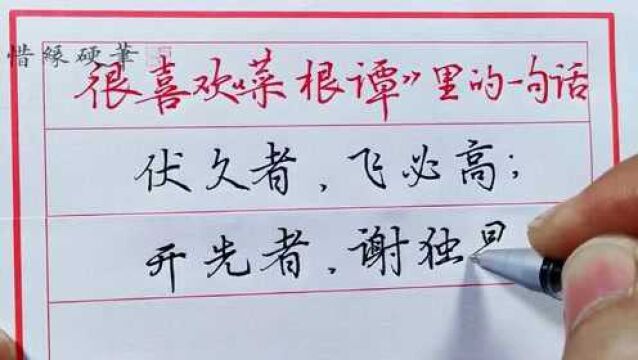 惜緣硬筆
很喜欢《菜根谭》里的一句话
伏久者，飞必高；
开先者，谢独